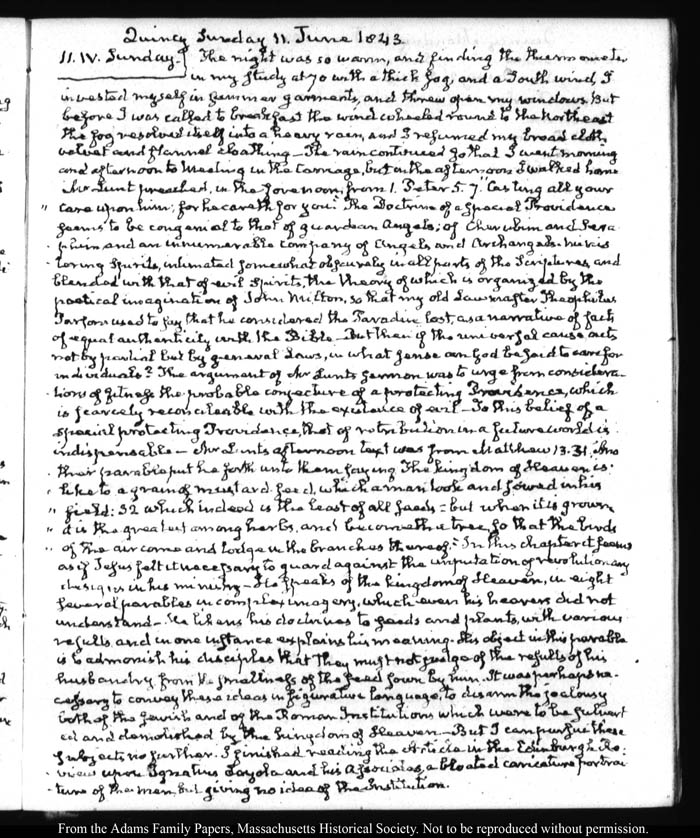 Quincy Sunday 11. June 1843
11. IV. Sunday. The night was so warm, and finding the thermometer
in my study at 70 with a thick fog, and a South wind, I
invested myself in summer garments, and threw open my windows. But
before I was called to breakfast the wind wheeled round to the Northeast
the fog resolved itself into a heavy rain, and I resumed my broad cloth
velvet and flannel cloathing — The rain continued so that I went morning
and afternoon to Meeting in the Carriage, but in the afternoon I walked home
Mr Lunt preached, in the forenoon, from 1. Peter 5. 7. "Casting all your
" care upon him; for he careth for you." The Doctrine of a special Providence
seems to be congenial to that of guardian Angels; of Cherubim and Sera-
phim and an innumerable company of Angels and Archangels. minis-
tering Spirits, intimated somewhat obscurely in all parts of the Scriptures, and
blended with that of evil Spirits, the theory of which is organized by the
poetical imagination of John Milton, so that my old Lawmaster Theophilus
Parsons used to say that he considered the Paradise lost, as a narrative of facts
of equal authenticity with the Bible — But then if the universal cause acts
not by partial but by general Laws, in what sense can God be said to care for
individuals? The argument of Mr Lunt's sermon was to urge from considera-
tions of fitness the probable conjecture of a protecting Providence, which
is scarcely reconcileable with the existence of evil — To this belief of a
special protecting Providence, that of retribution in a future world is
indispensable — Mr Lunt's afternoon text was from Matthew 13. 31. Ano
" ther parable put he forth unto them saying The kingdom of Heaven is
" like to a grain of mustard seed, which a man took and sowed in his
" field: 32 which indeed is the least of all seeds — but when it is grown
" it is the greatest among herbs, and becometh a tree, so that the birds
" of the air come and lodge in the branches thereof." In this chapter it seems
as if Jesus felt it necessary to guard against the imputation of revolutionary
designs in his ministry — He speaks of the kingdom of Heaven, in eight
several parables in complex imagery, which even his hearers did not
understand — He likens his doctrines to seeds and plants, with various
results and in one instance explains his meaning — His object in this parable
is to admonish his disciples that they must not judge of the results of his
husbandry from the smallness of the seed sown by him. It was perhaps ne-
cessary to convey these ideas in figurative language, to disarm the jealousy
both of the Jewish and of the Roman Institutions which were to be subvert
ed and demolished by the kingdom of Heaven — But I can pursue these
subjects no further. I finished reading the Article in the Edinburgh Re-
view upon Ignatius Loyola and his Associates, a bloated caricature portrai-
ture of the men, but giving no idea of the Institution.
From the Adams Family Papers, Massachusetts Historical Society. Not to be reproduced without permission.